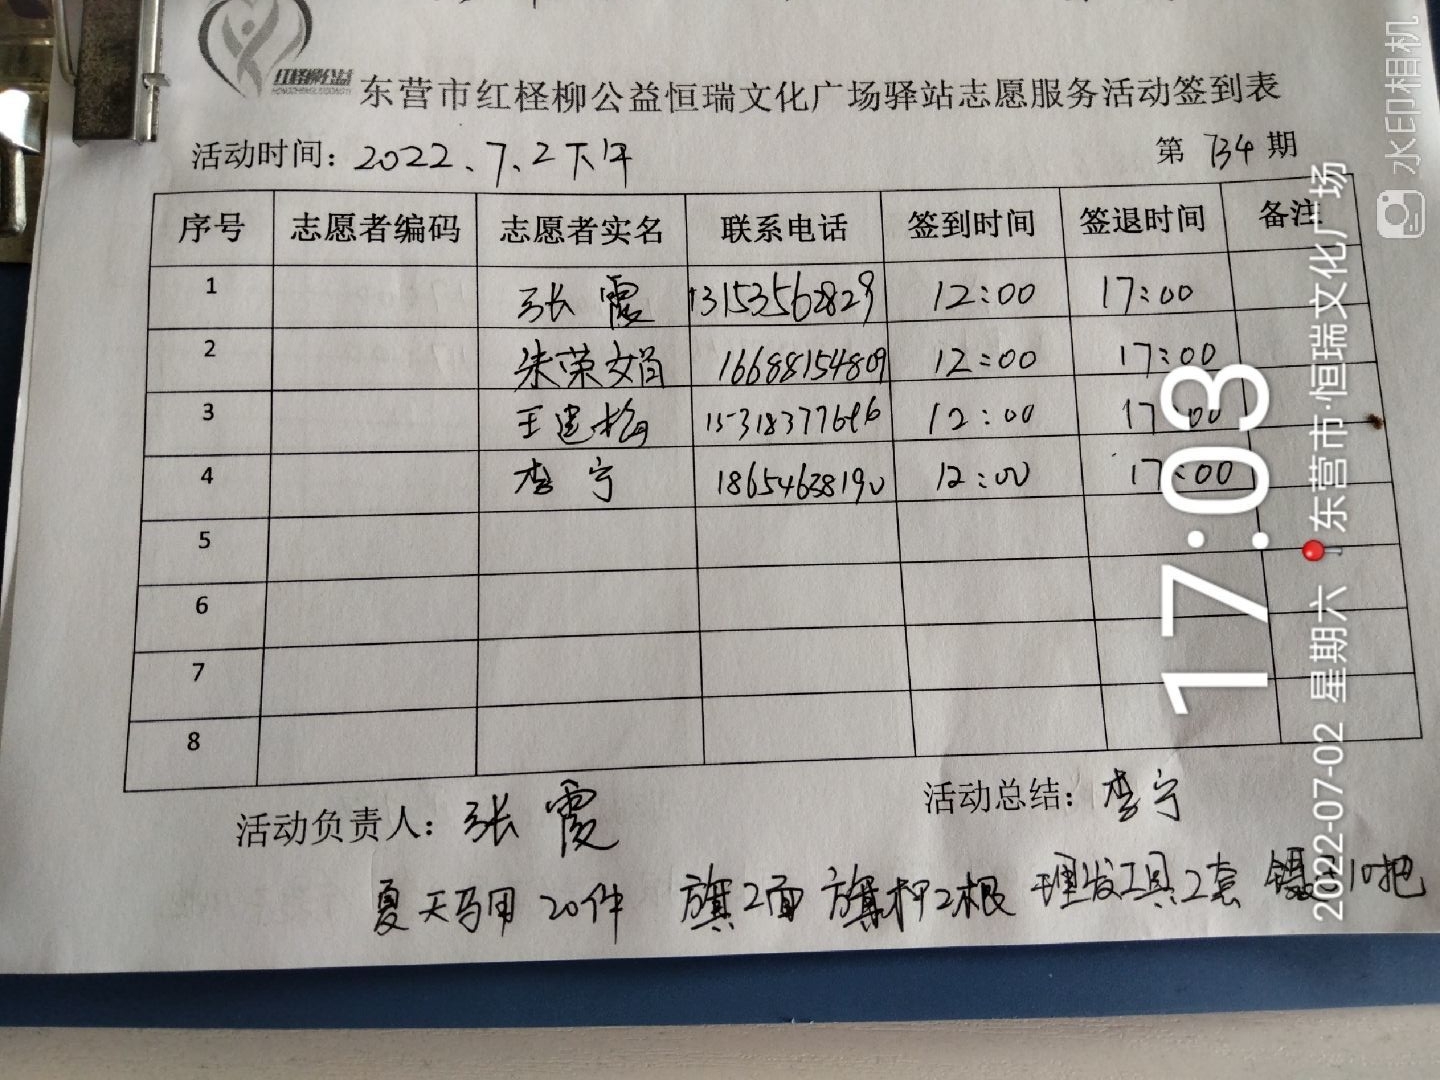 红柽柳公益
东营市红柽柳公益恒瑞文化广场驿站志愿服务活动签到表
活动时间：2022、7、2下午 第 734 期
序号 志愿者编码 志愿者实名 联系电话 签到时间 签退时间 备注
1 张霞 13153562829 12:00 17:00
2 朱荣娟 16688154809 12:00 17:00
3 王建梅 12:00 17:00
4 李宁 18654638190 12:00 17:00
5
6
7
8
活动负责人：张霞 活动总结：李宁
夏天马甲 20件 旗2面 旗杆2根 理发工具2套 10把
水印相机
17:03
2022-07-02 星期六 东营市·恒瑞文化广场